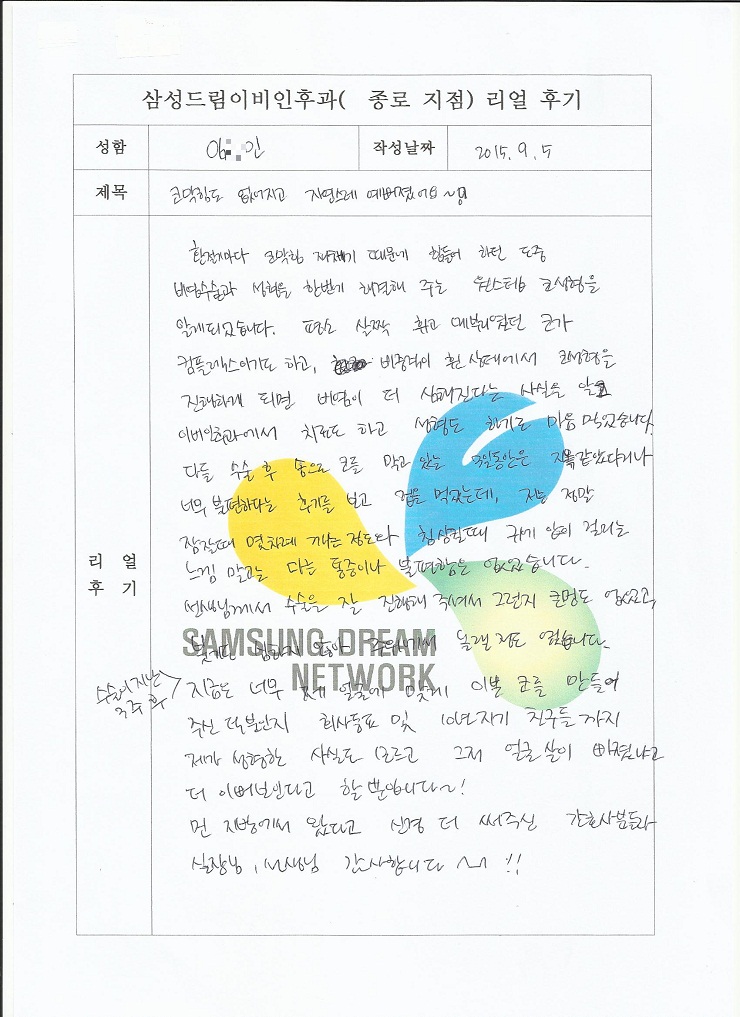 삼성드림이비인후과( 종로 지점) 리얼 후기
성함
작성날짜 2015. 9. 5
제목 코막힘도 없어지고 자연스레 예뻐졌어요~!!
환절기마다 코막힘 때문에 힘들어 하던 도중
비염수술과 성형을 한번에 해결해 주는 원스텝 코성형을
알게되었습니다. 평소 살짝 휘고 매부리였던 코가
컴플렉스이기도 하고, 비중격이 휜 상태에서 코성형을
진행하게 되면 비염이 더 심해진다는 사실을 알고
이비인후과에서 치료도 하고 성형도 하기로 마음 먹었습니다.
다들 수술 후 솜으로 코를 막고 있는 동안은 지옥같았다거나
너무 불편하다는 후기를 보고 겁을 먹었는데, 저는 정말
잠잘때 몇차례 깨는 정도와 침삼킬때 귀가 같이 걸리는
느낌 말고는 다른 통증이나 불편함은 없었습니다.
선생님께서 수술을 잘 진행해 주셔서 그런지 큰멍도 없었고,
붓기도 심하지 않아 주위에서 놀랠 정도 였습니다.
수술이 지난
3주 후
지금은 너무 제 얼굴에 맞게 이쁜 코를 만들어
주신 덕분인지 회사동료 및 10년지기 친구들까지
제가 성형한 사실도 모르고 그저 얼굴 살이 빠졌냐고
더 이뻐보인다고 할 뿐입니다~!
먼 지방에서 왔다고 신경 더 써주신 간호사분들과
실장님, 선생님 감사합니다 ^^ !!
리 얼
후 기
SAMSUNG DREAM
NETWORK